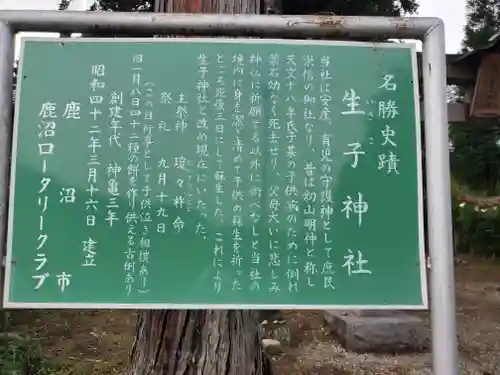 名勝史蹟
いきこ
生子神社
当社は安産、育児の守護神として庶民
崇信の御社なり、昔は初山明神と称し
天文十八年氏子某の子供病のために倒れ
薬石効なく死去せり、父母大いに悲しみ
神仏に祈願する以外に術べなしと当社の
境内に身を潔め清めて子供の蘇生を祈った
ところ死後三日にして蘇生した。これにより
生子神社と改め現在にいたった。
主祭神 瓊々杵命
祭礼 九月十九日
(この日行事として子供泣き相撲あり)
旧一月八日四十二種の餅を作り供える古例あり
創建年代 神亀三年
昭和四十二年三月十六日 建立
鹿沼市
鹿沼ロータリークラブ